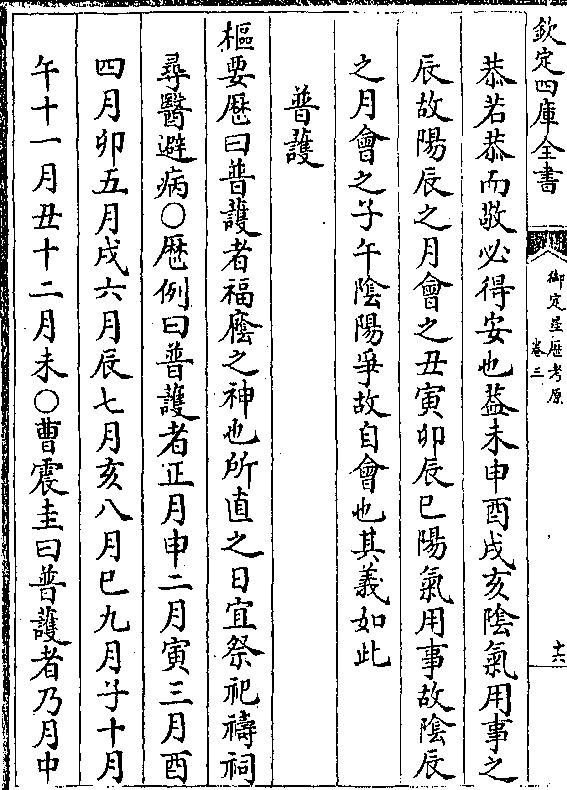 欽定四庫全書
御定星歴考原
卷三
十六
恭若恭而敬必得安也葢未申酉戌亥陰氣用事之
辰故陽辰之月會之丑寅卯辰巳陽氣用事故陰辰
之月會之子午陰陽爭故自會也其義如此
普護
樞要歴曰普護者福廕之神也所直之日宜祭祀禱祠
尋醫避病○歴例曰普護者正月申二月寅三月酉
四月卯五月戌六月辰七月亥八月巳九月子十月
午十一月丑十二月未○曹震圭曰普護者乃月中